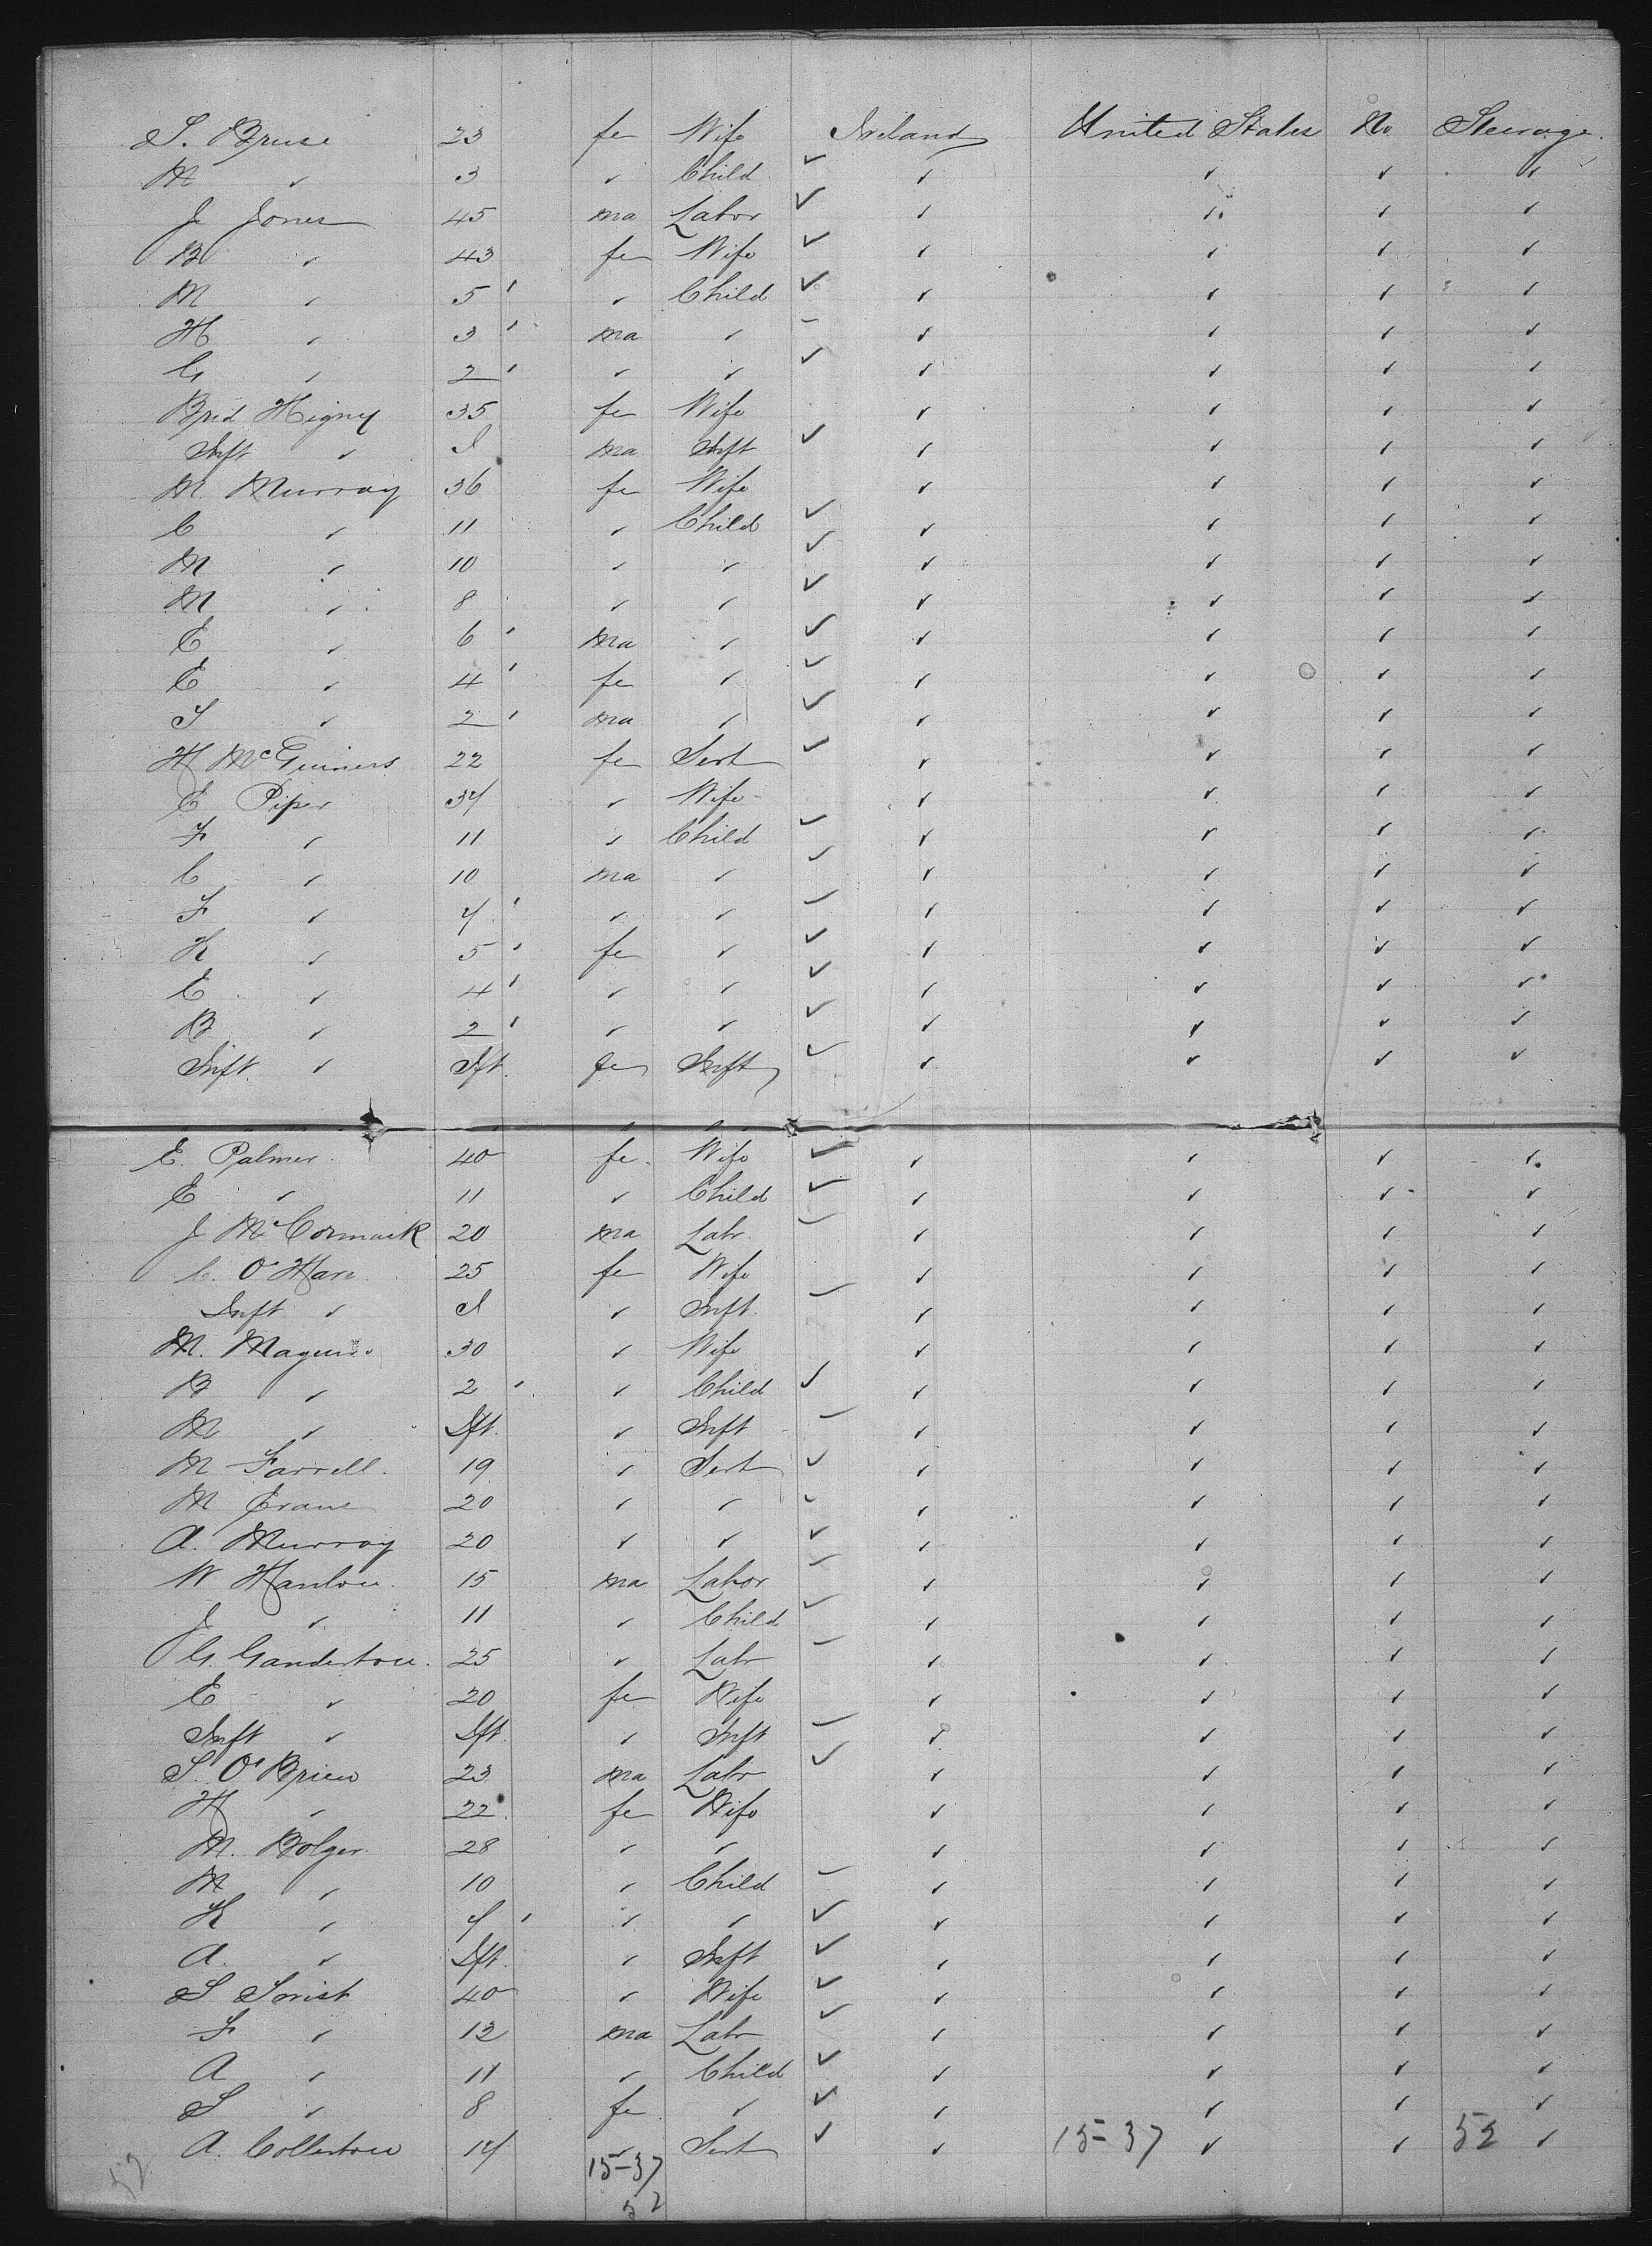 S. Bruse 23 fe Wife Ireland United States No Steerage
M ✓ 3 ✓ Child ✓ ✓ ✓ ✓ ✓
J Jones 45 ma Labor ✓ ✓ ✓ ✓ ✓
B ✓ 43 fe Wife ✓ ✓ ✓ ✓ ✓
M ✓ 5 ✓ Child ✓ ✓ ✓ ✓ ✓
H ✓ 3 ma ✓ ✓ ✓ ✓ ✓
G ✓ 2 ✓ ✓ ✓ ✓ ✓ ✓ ✓
Brid Higney 35 fe Wife ✓ ✓ ✓ ✓
Inft ✓ I ma Inft ✓ ✓ ✓ ✓ ✓
M. Murray 36 fe Wife ✓ ✓ ✓ ✓
C ✓ 11 ✓ Child ✓ ✓ ✓ ✓ ✓
M ✓ 10 ✓ ✓ ✓ ✓ ✓ ✓ ✓
M ✓ 8 ✓ ✓ ✓ ✓ ✓ ✓ ✓
E ✓ 6 ma ✓ ✓ ✓ ✓ ✓ ✓
E ✓ 4 fe ✓ ✓ ✓ ✓ ✓ ✓
S ✓ 2 ma ✓ ✓ ✓ ✓ ✓ ✓
H McGuiness 22 fe Sert ✓ ✓ ✓ ✓ ✓
E Piper 34 ✓ Wife ✓ ✓ ✓ ✓
F ✓ 11 ✓ Child ✓ ✓ ✓ ✓ ✓
C ✓ 10 ma ✓ ✓ ✓ ✓ ✓ ✓
F ✓ 7 ✓ ✓ ✓ ✓ ✓ ✓
K ✓ 5 fe ✓ ✓ ✓ ✓ ✓ ✓
E ✓ 4 ✓ ✓ ✓ ✓ ✓ ✓ ✓
B ✓ 2 ✓ ✓ ✓ ✓ ✓ ✓ ✓
Inft ✓ Ift. fe Inft ✓ ✓ ✓ ✓ ✓
E. Palmer 40 fe. Wife ✓ ✓ ✓ ✓ ✓
E ✓ 11 ✓ Child ✓ ✓ ✓ ✓ ✓
J McCormack 20 ma Labr ✓ ✓ ✓ ✓
C. O'Hare 25 fe Wife ✓ ✓ ✓ ✓
Inft ✓ I ✓ Inft. ✓ ✓ ✓ ✓
M. Maguire 30 ✓ Wife ✓ ✓ ✓ ✓
B ✓ 2 ✓ Child ✓ ✓ ✓ ✓ ✓
M ✓ Ift. ✓ Inft ✓ ✓ ✓ ✓
M Farrell. 19 ✓ Sert ✓ ✓ ✓ ✓ ✓
M Evans 20 ✓ ✓ ✓ ✓ ✓ ✓ ✓
A. Murray 20 ✓ ✓ ✓ ✓ ✓ ✓ ✓
W Hanlon 15 ma Labor ✓ ✓ ✓ ✓ ✓
J ✓ 11 ✓ Child ✓ ✓ ✓ ✓ ✓
G. Ganderton. 25 ✓ Labr ✓ ✓ ✓ ✓
E ✓ 20 fe Wife ✓ ✓ ✓ ✓
Inft ✓ Ift. ✓ Inft ✓ ✓ ✓ ✓
S. O'Brien 23 ma Labr ✓ ✓ ✓ ✓ ✓
H ✓ 22 fe Wife ✓ ✓ ✓ ✓
M. Bolger 28 ✓ ✓ ✓ ✓ ✓ ✓
M ✓ 10 ✓ Child ✓ ✓ ✓ ✓
K ✓ 7 ✓ ✓ ✓ ✓ ✓ ✓ ✓
A. ✓ Ift. ✓ Inft ✓ ✓ ✓ ✓ ✓
S ✓ 40 ✓ Wife ✓ ✓ ✓ ✓ ✓
F ✓ 12 ma Labr ✓ ✓ ✓ ✓ ✓
A ✓ 11 ✓ Child ✓ ✓ ✓ ✓ ✓
S ✓ 8 fe ✓ ✓ ✓ ✓ ✓ ✓
A. Collerton 14 ✓ Sert ✓ ✓ 15-37 ✓ ✓ 52 ✓
52 15-37
52